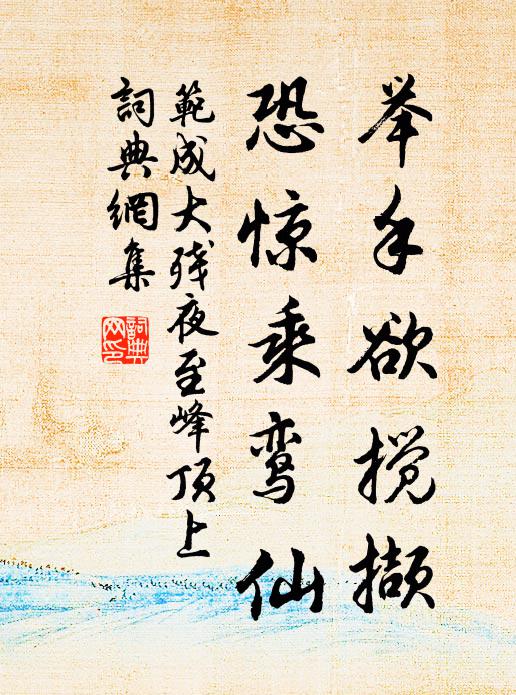 举手欲搅撷
恐惊乘鸾仙
範成大残夜至峰顶上
詞典網集
詞典
网印